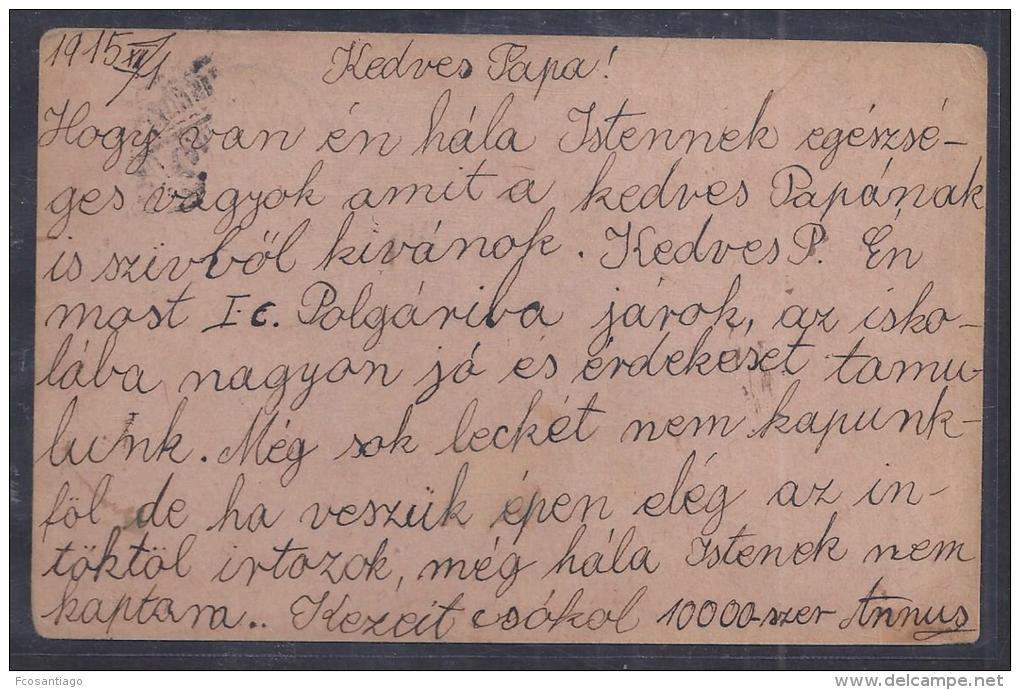 1915 XII/1
Kedves Papa!
Hogy van én hála Istennek egészsé-
ges vagyok amit a kedves Papának
is szivből kivánok. Kedves P. Én
most I.c. Polgáriba járok, az isko-
lába nagyon jó és érdekeset tamu-
lunk. Még sok leckét nem kapunk-
föl de ha veszük épen elég az in-
töktöl irtozok, még hála Istenek nem
kaptam.. Kezeit csókol 10000-szer Annus
Fcosantiago
delcampe.net